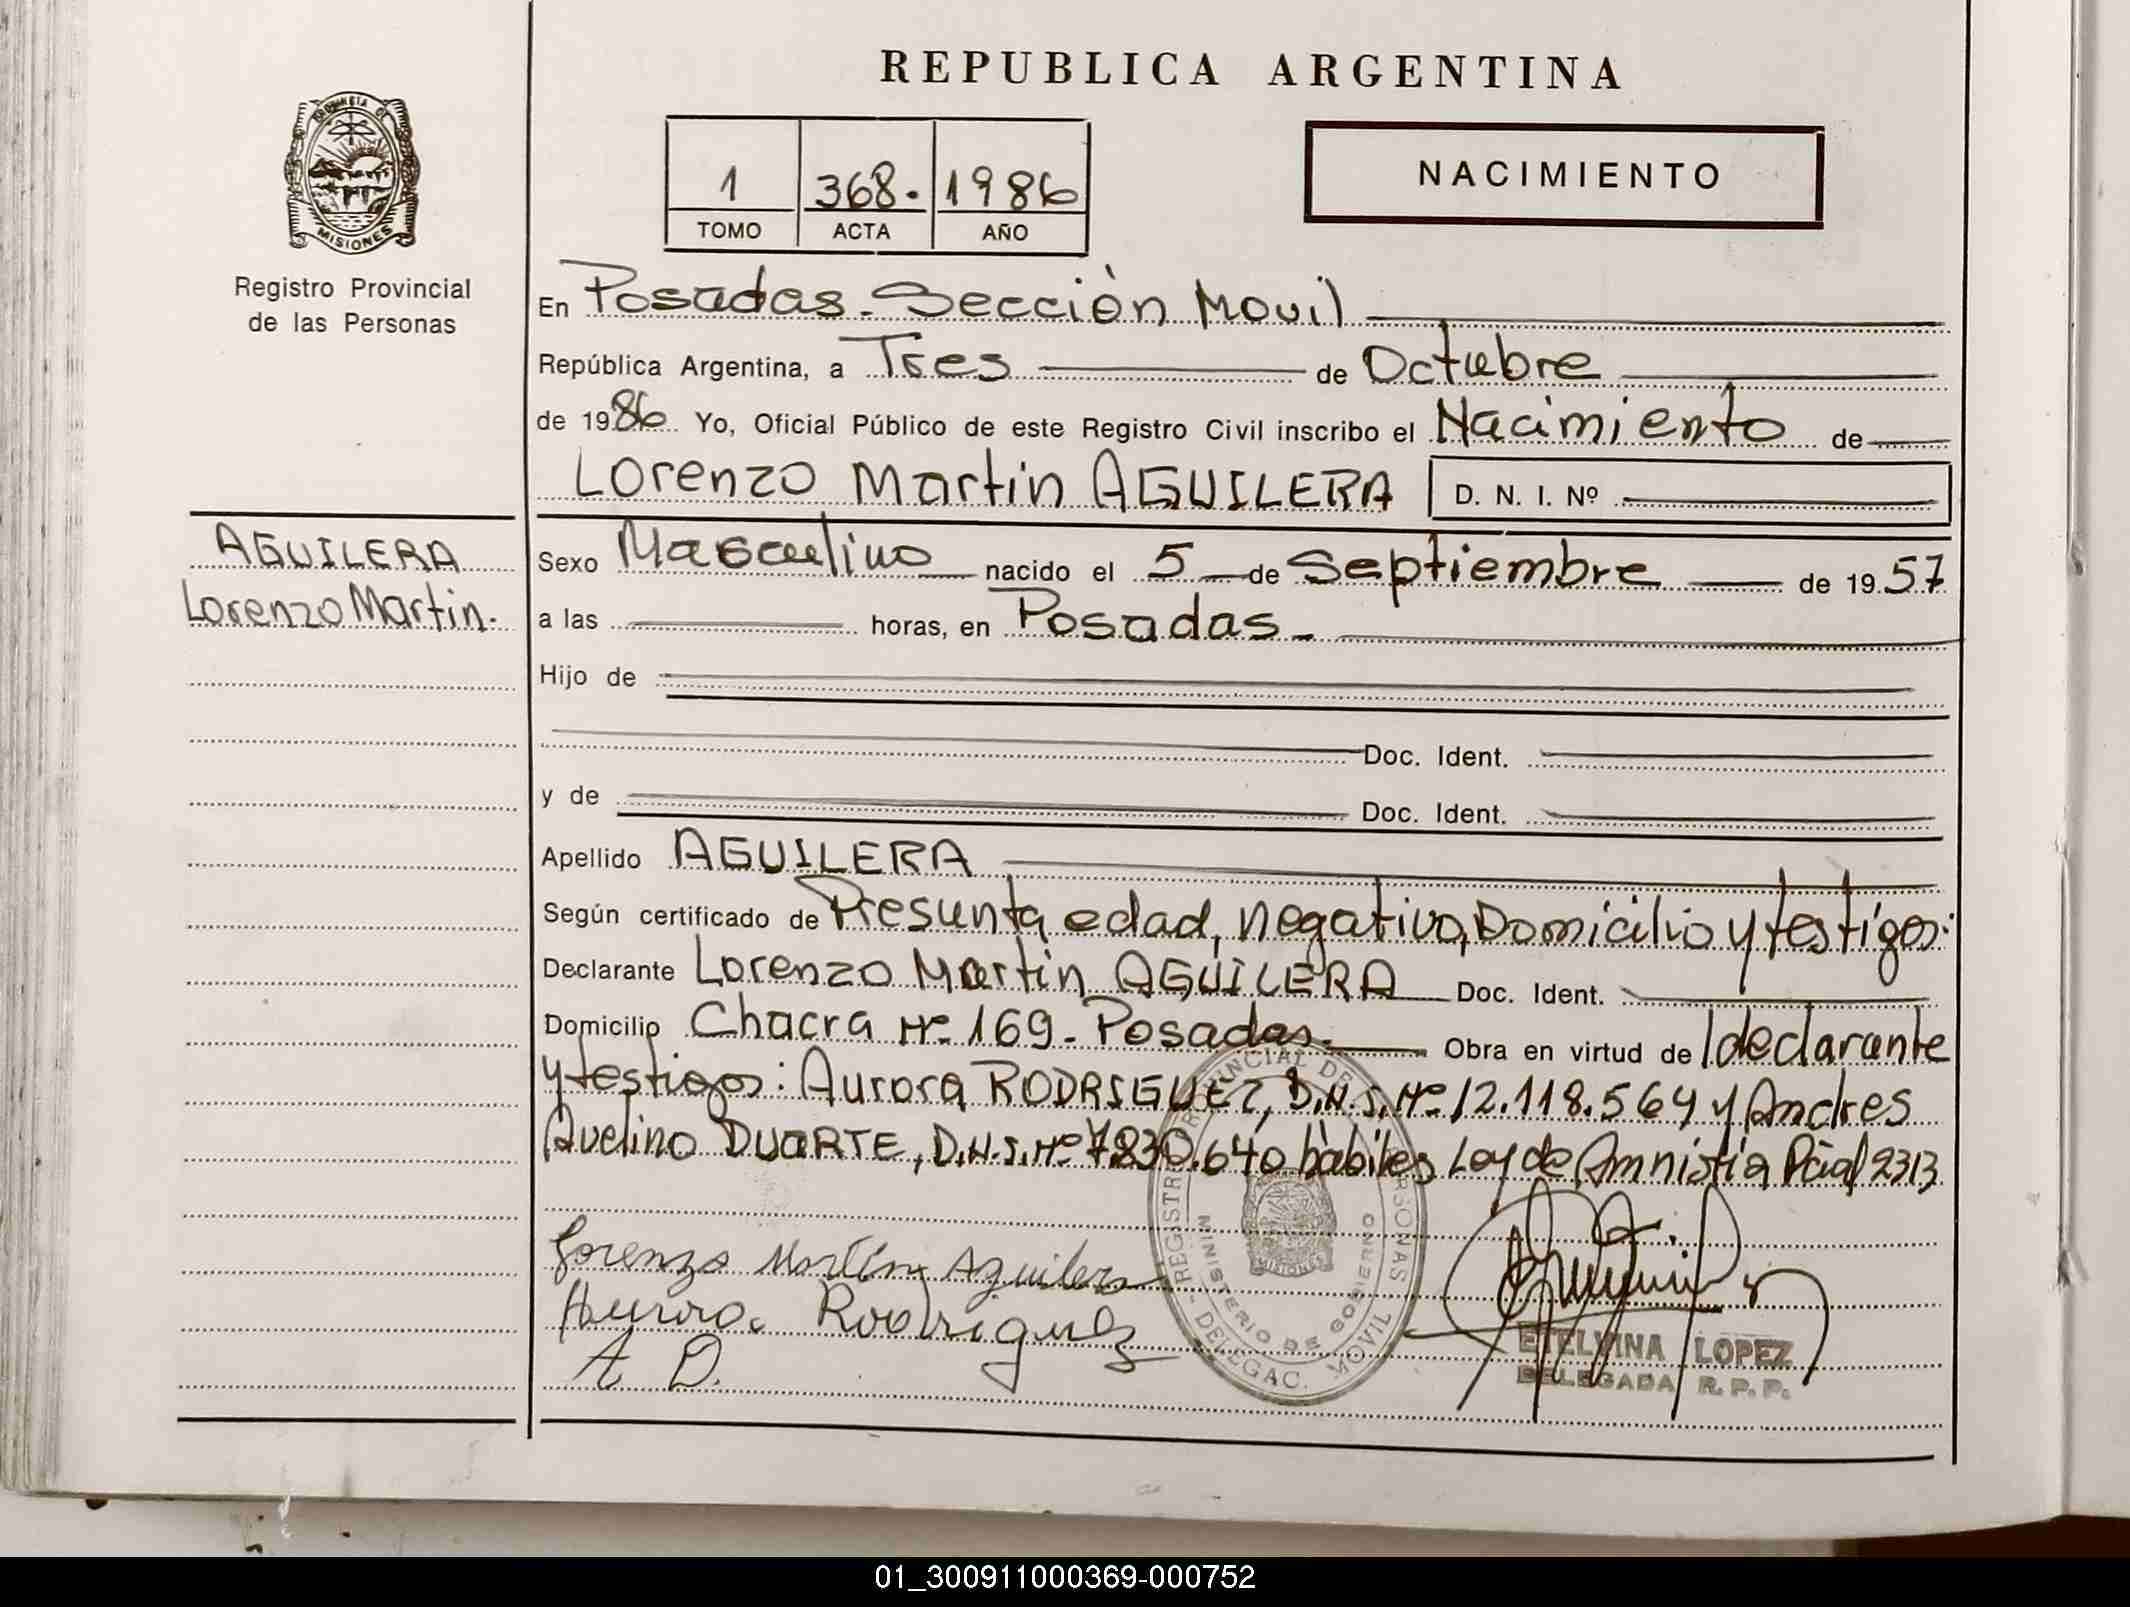 REPUBLICA ARGENTINA
PROVINCIA DE
MISIONES
Registro Provincial
de las Personas
1 368. 1986
TOMO ACTA AÑO
NACIMIENTO
En Posadas. Sección Movil
República Argentina, a Tres de Octubre
de 1986 Yo, Oficial Público de este Registro Civil inscribo el Nacimiento de
Lorenzo Martin AGUILERA D. N. I. Nº
AGUILERA
Lorenzo Martin.
Sexo Masculino nacido el 5 de Septiembre de 1957
a las horas, en Posadas
Hijo de
Doc. Ident.
y de Doc. Ident.
Apellido AGUILERA
Según certificado de Presunta edad, negativo, Domicilio y testigos:
Declarante Lorenzo Martin AGUILERA Doc. Ident.
Domicilio Chacra Nº 169 - Posadas. Obra en virtud de declarante
y testigos: Aurora RODRIGUEZ, D.N.I. Nº 12.118.564 y Andres
Avelino DUARTE, D.N.I. Nº 7.830.640 hábiles Ley de Amnistia Pcial 2313
Lorenzo Martín Aguilera
Aurora Rodriguez
A D.
REGISTRO PROVINCIAL DE LAS PERSONAS
MINISTERIO DE GOBIERNO
MISIONES
DELEGAC. MOVIL
ETELVINA LOPEZ
DELEGADA R. P. P.
01_300911000369-000752